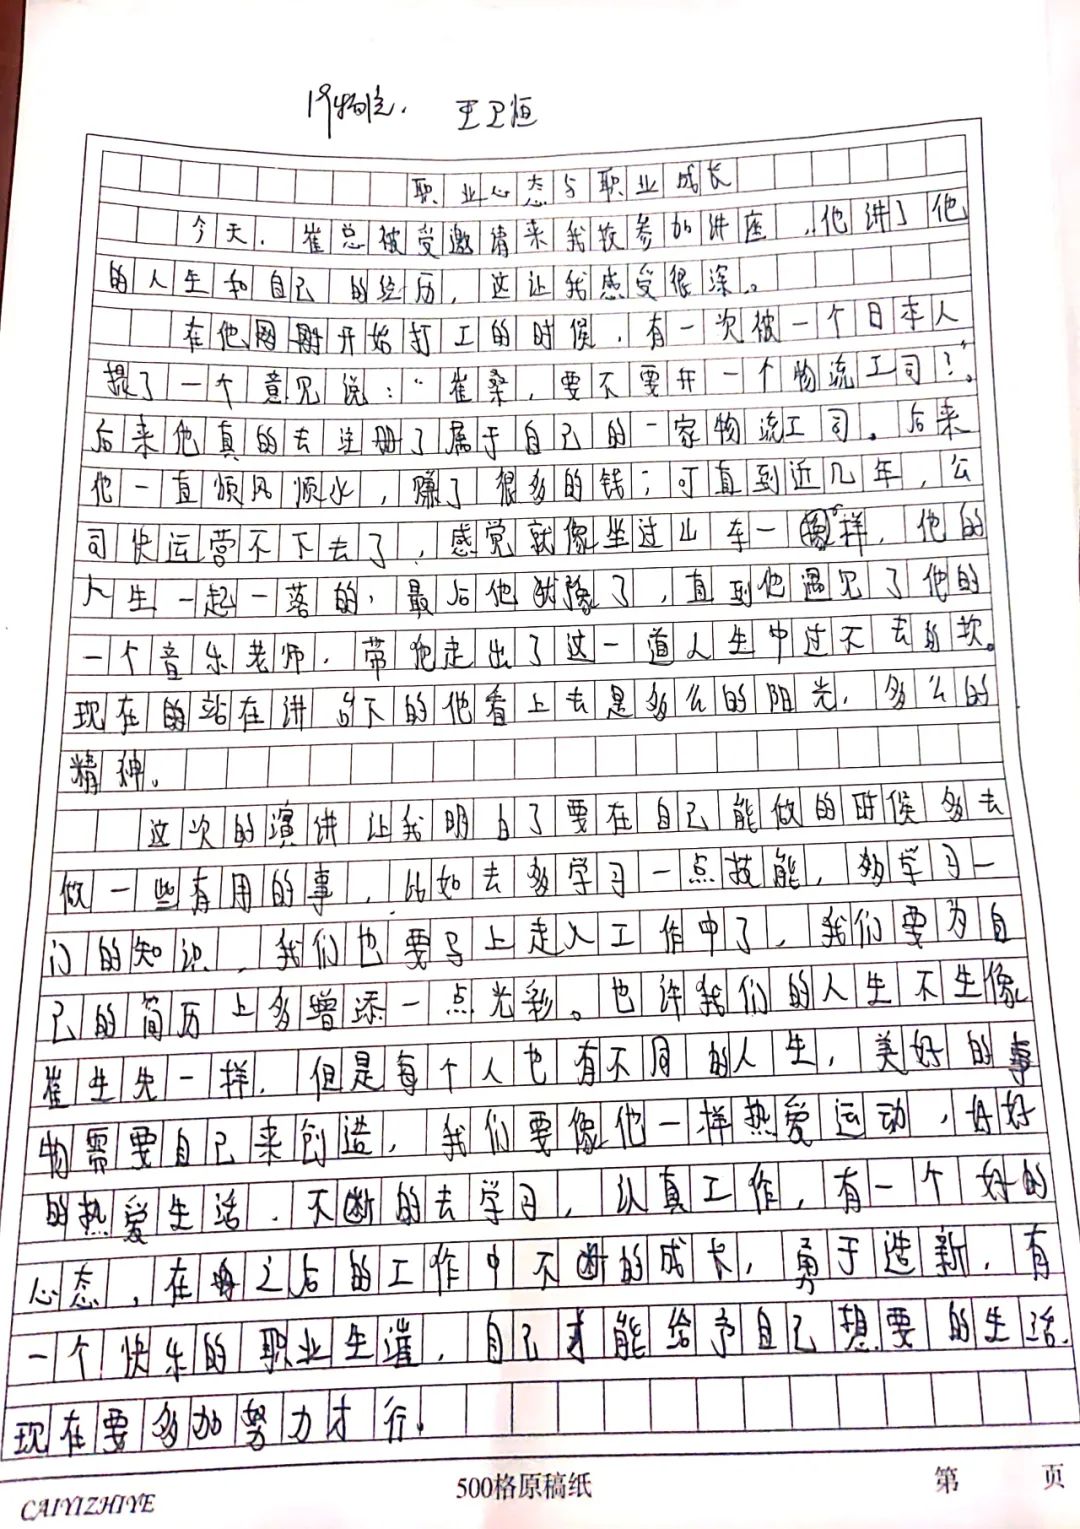 王卫恒
职业心态与职业成长
今天，崔总被受邀请来我校参加讲座，他讲了他
的人生和自己的经历，这让我感受很深。
在他刚开始打工的时候，有一次被一个日本人
提了一个意见说：“崔桑，要不要开一个物流工司？”。
后来他真的去注册了属于自己的一家物流工司。后来
他一直顺风顺水，赚了很多的钱；可直到近几年，公
司快运营不下去了，感觉就像坐过山车一样，他的
人生一起一落的，最后他犹豫了，直到他遇见了他的
一个音乐老师，带他走出了这一道人生中过不去的坎。
现在的站在讲台下的他看上去是多么的阳光，多么的
精神。
这次的演讲让我明白了要在自己能做的时候多去
做一些有用的事，比如去多学习一点技能，多学习一
门的知识，我们也要马上走入工作中了，我们要为自
己的简历上多增添一点光彩。也许我们的人生不生像
崔生先一样，但是每个人也有不同的人生，美好的事
物需要自己来创造，我们要像他一样热爱运动，好好
的热爱生活，不断的去学习，认真工作，有一个好的
心态，在之后的工作中不断的成长，勇于造新，有
一个快乐的职业生漄，自己才能给予自己想要的生活，
现在要多加努力才行。
CAIYIZHIYE
500格原稿纸
第 页